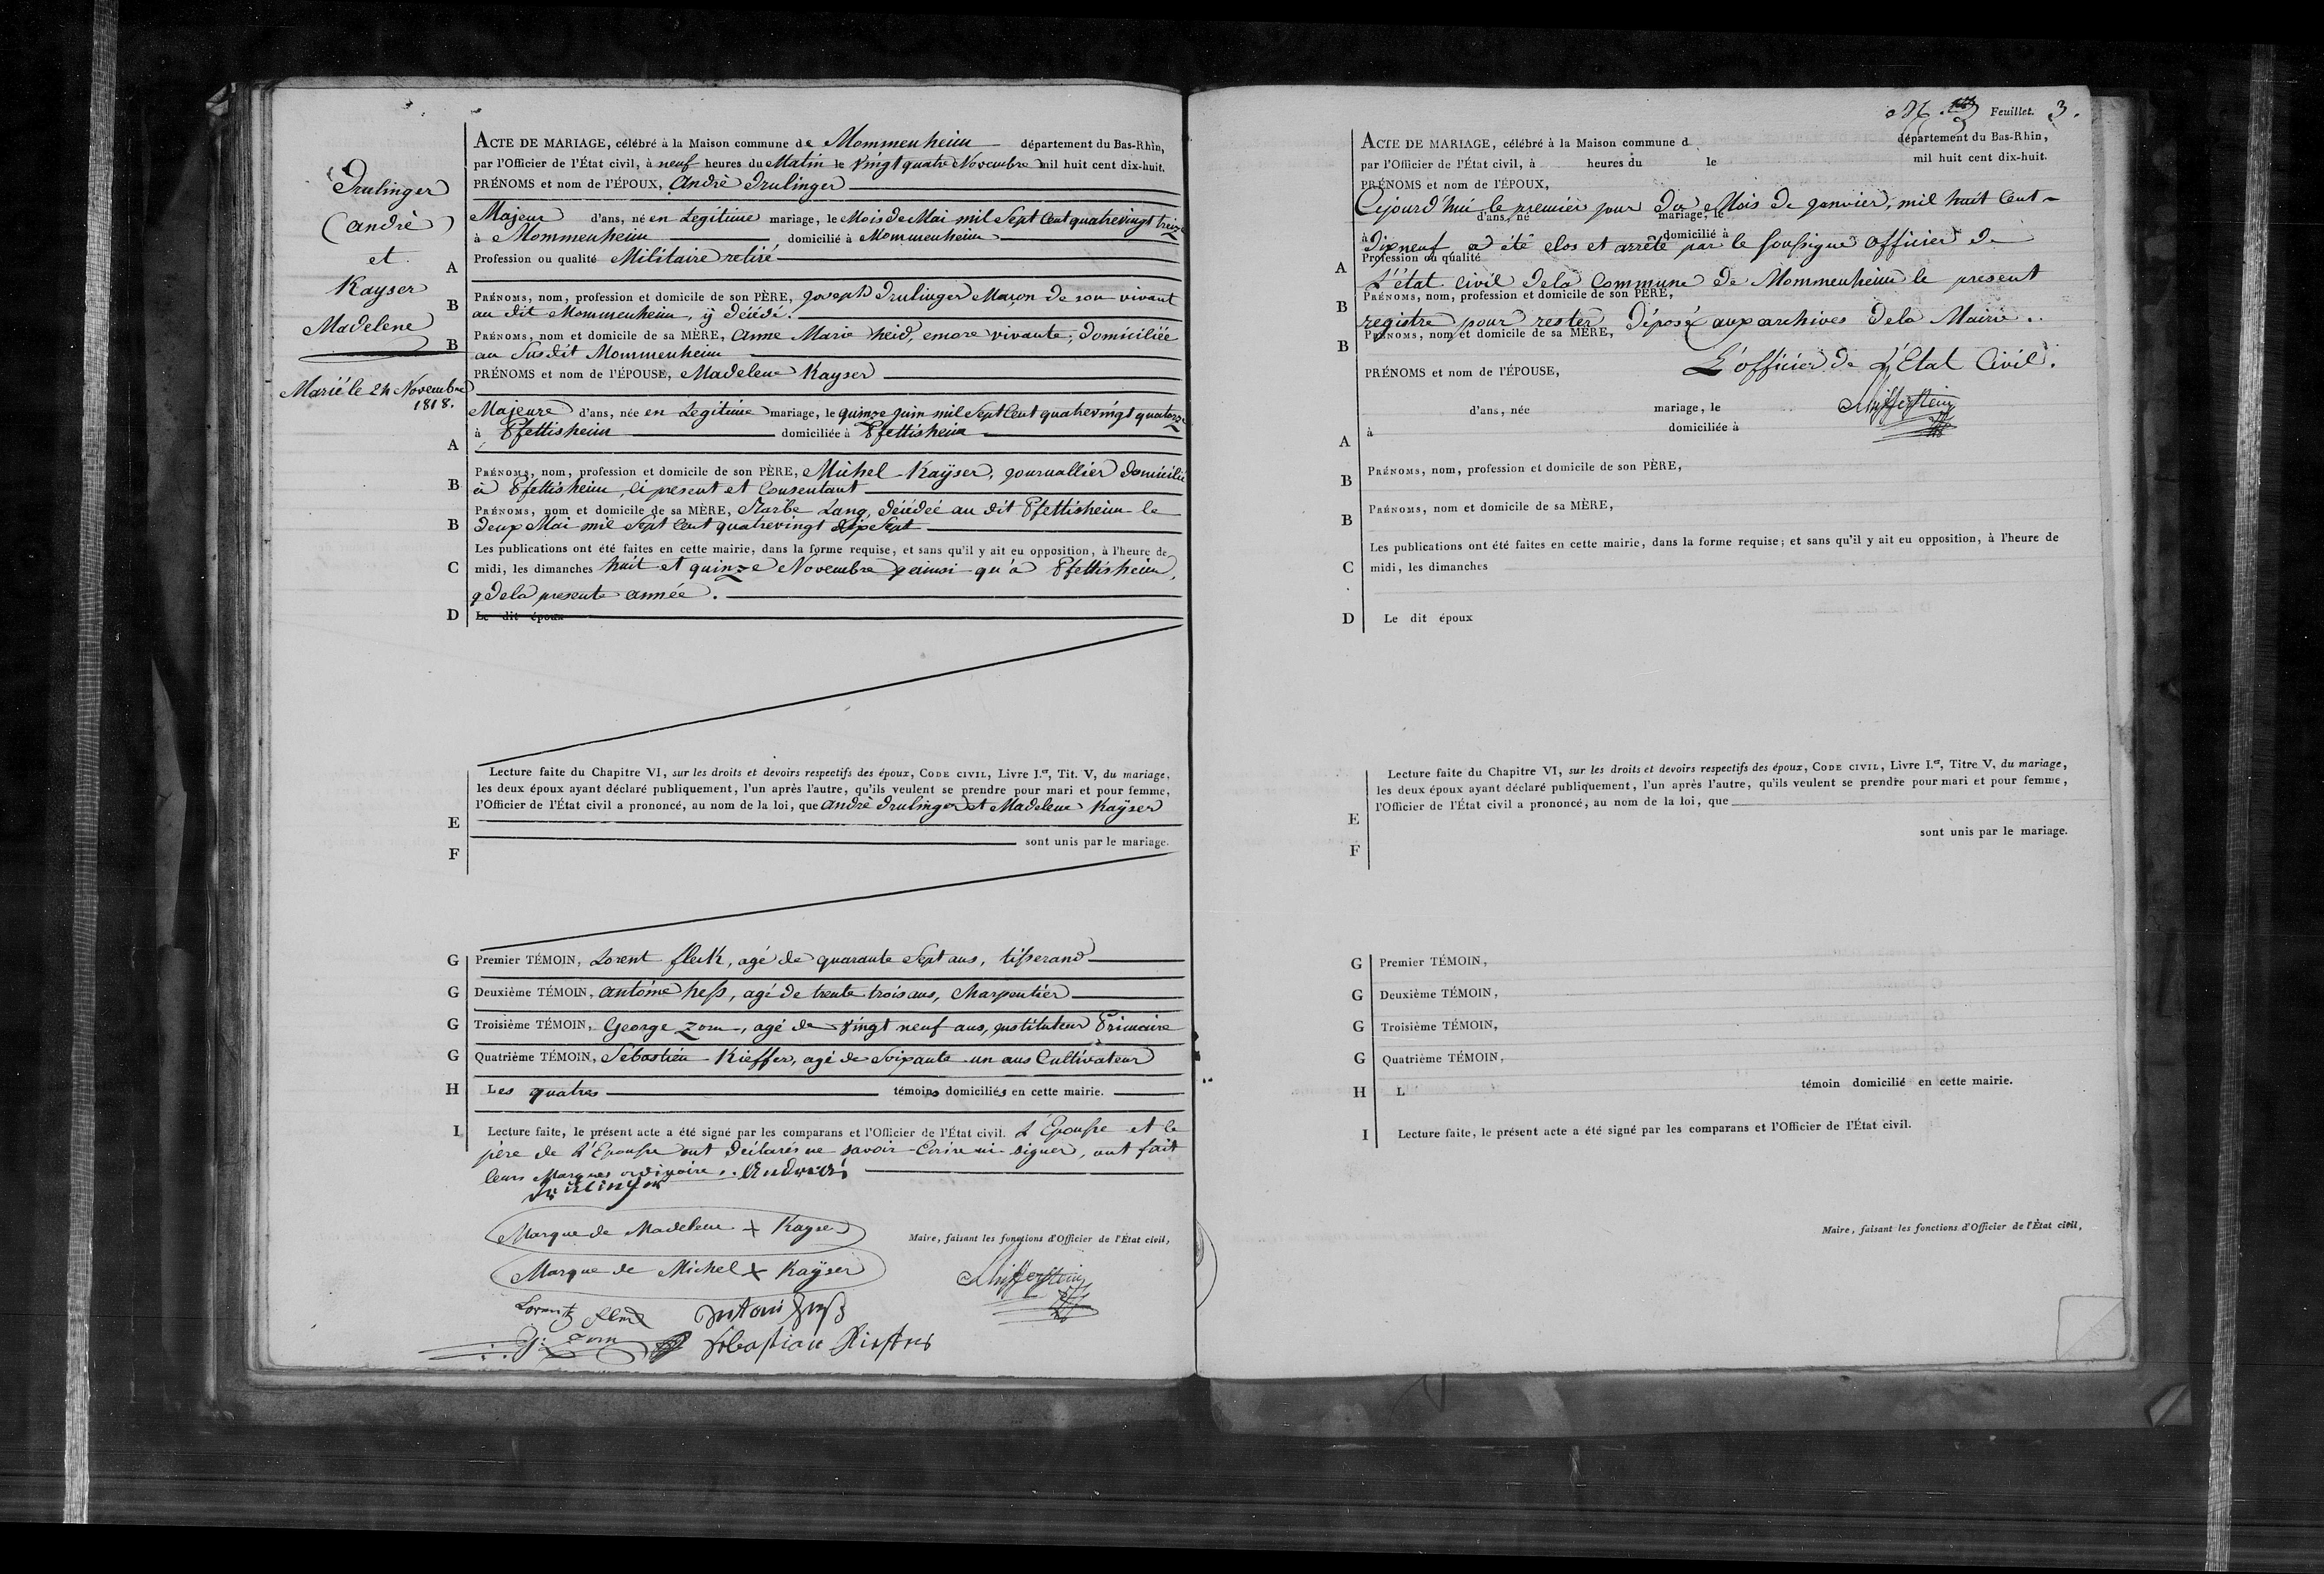 Drulinger
(andrè)
et
Kayser
Madelene
Marié le 24 Novembre
1818.
ACTE DE MARIAGE, célébré à la Maison commune de Mommenheim département du Bas-Rhin,
par l'Officier de l'État civil, à neuf heures du Matin le Vingt quatre Novembre mil huit cent dix-huit.
PRÉNOMS et nom de l'ÉPOUX, andrè Drulinger
Majeur d'ans, né en Legitime mariage, le Mois de Mai mil Sept Cent quatrevingt treize
à Mommenheim domicilié à Mommenheim
A Profession ou qualité Militaire retiré
B PRÉNOMS, nom, profession et domicile de son PÈRE, joseph Drulinger Maçon de son vivant
au dit Mommenheim, ÿ décédé.
B PRÉNOMS, nom et domicile de sa MÈRE, anne Marie heid, encore vivante, domiciliée
au Susdit Mommenheim
PRÉNOMS et nom de l'ÉPOUSE, Madelene Kayser
Majeure d'ans, née en Legitime mariage, le quinze juin mil Sept Cent quatrevingt quatorze
à Pfettisheim domiciliée à Pfettisheim
A
B PRÉNOMS, nom, profession et domicile de son PÈRE, Michel Kaÿser, journallier domicilié
à Pfettisheim, ci present et Consentant
B PRÉNOMS, nom et domicile de sa MÈRE, Barbe Lang, décédée au dit Pfettisheim le
deux Mai mil Sept Cent quatrevingt dix Sept
Les publications ont été faites en cette mairie, dans la forme requise, et sans qu'il y ait eu opposition, à l'heure de
C midi, les dimanches huit et quinze Novembre ainsi qu'à Pfettisheim,
de la presente année.
D Le dit époux
Lecture faite du Chapitre VI, sur les droits et devoirs respectifs des époux, CODE CIVIL, Livre I.er, Tit. V, du mariage,
les deux époux ayant déclaré publiquement, l'un après l'autre, qu'ils veulent se prendre pour mari et pour femme,
l'Officier de l'État civil a prononcé, au nom de la loi, que andrè Drulinger et Madelene Kaÿser
E
sont unis par le mariage.
F
G Premier TÉMOIN, Lorent fleck, agé de quarante Sept ans, tisserand
G Deuxième TÉMOIN, antoine hess, agé de trente trois ans, Charpentier
G Troisième TÉMOIN, George Zorn, agé de Vingt neuf ans, instituteur Primaire
G Quatrième TÉMOIN, Sébastien Kieffer, agé de Soixante un ans Cultivateur
H Les quatres témoins domiciliés en cette mairie.
I Lecture faite, le présent acte a été signé par les comparans et l'Officier de l'État civil. L'Epouse et le
père de L'Epouse ont déclarés ne savoir Ecrire ni signer, ont fait
leurs Marques ordinaire. Andreas
Drulinger
Marque de Madelene + Kayser
Marque de Michel + Kaÿser
Maire, faisant les fonctions d'Officier de l'État civil,
Lorentz fleck Antoni Hess
G: Zorn Sebastian Kieffer
Feuillet. 3.
ACTE DE MARIAGE, célébré à la Maison commune d département du Bas-Rhin,
par l'Officier de l'État civil, à heures du le mil huit cent dix-huit.
PRÉNOMS et nom de l'ÉPOUX,
Cejourd'hui le premier jour du Mois de janvier, mil huit Cent
d'ans, né mariage, le
à domicilié à
dixneuf a été clos et arrêté par le soussigné officier de
A Profession ou qualité
L'état Civil dela Commune de Mommenheim le present
B PRÉNOMS, nom, profession et domicile de son PÈRE,
registre pour rester déposé aux archives dela Mairie.
B PRÉNOMS, nom et domicile de sa MÈRE,
L'officier de L'Etat Civil.
PRÉNOMS et nom de l'ÉPOUSE,
d'ans, née mariage, le
à domiciliée à
A
B PRÉNOMS, nom, profession et domicile de son PÈRE,
B PRÉNOMS, nom et domicile de sa MÈRE,
Les publications ont été faites en cette mairie, dans la forme requise; et sans qu'il y ait eu opposition, à l'heure de
C midi, les dimanches
D Le dit époux
Lecture faite du Chapitre VI, sur les droits et devoirs respectifs des époux, CODE CIVIL, Livre I.er, Titre V, du mariage,
les deux époux ayant déclaré publiquement, l'un après l'autre, qu'ils veulent se prendre pour mari et pour femme,
l'Officier de l'État civil a prononcé, au nom de la loi, que
E
sont unis par le mariage.
F
G Premier TÉMOIN,
G Deuxième TÉMOIN,
G Troisième TÉMOIN,
G Quatrième TÉMOIN,
H L témoin domicilié en cette mairie.
I Lecture faite, le présent acte a été signé par les comparans et l'Officier de l'État civil.
Maire, faisant les fonctions d'Officier de l'État civil,